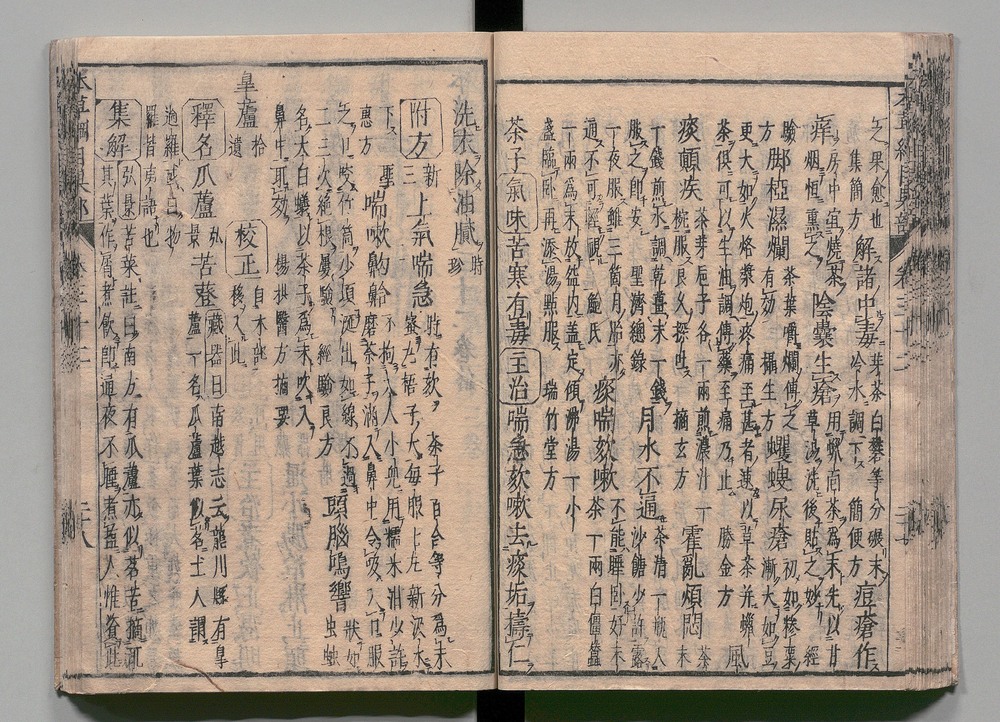 之果愈也 集簡方 解諸中毒 芽茶白礬等分碾末 冷水調下 簡便方 痘瘡作
痒 房中宜燒茶烟恒熏之 陰囊生瘡 用蠟面茶為末先以甘草湯洗後貼之妙 經
驗方 脚椏濕爛 茶葉嚼爛傅之有効 攝生方 蠼螋尿瘡 初如糝粟漸大如豆
更大如火烙漿炮疼痛至甚者速以草茶并蠟
茶俱可以生油調傅藥至痛乃止 勝金方 風
痰顛疾 茶芽巵子各一兩煎濃汁一椀服良久探吐 摘玄方 霍亂煩悶 茶末
一錢煎水調乾薑末一錢
服之即安 聖濟總錄 月水不通 茶清一瓶入沙糖少許露
一夜服雖三箇月胎亦
通不可輕視 鮑氏 痰喘欬嗽 不能睡臥好末茶一兩白僵蠶
一兩為末放盌內蓋定傾沸湯一小
盞臨臥再添湯點服 瑞竹堂方
茶子 氣味 苦寒有毒 主治 喘急欬嗽去痰垢擣仁
洗衣除油膩 時珍
附方 新三 上氣喘急 時有欬 茶子百合等分為末
蜜丸梧子大每服七丸新汲水
下 聖惠方 喘嗽齁䶎 不拘大人小兒用糯米泔少許
磨茶子滴入鼻中令吸入口服
之口咬竹筒少頃涎出如線不過
二三次絕根屢驗 經驗良方 頭腦鳴響 狀如蟲蛀
名大白蟻以茶子為末吹入
鼻中取効 楊拱醫方摘要
皐蘆 拾遺 校正 自木部移入此
釋名 瓜蘆 弘景 苦䔲 藏器曰南越志云龍川縣有皐
蘆一名瓜蘆葉似茗土人謂之
過羅或曰物
羅皆夷語也
集解 弘景曰苦菜註曰南方有瓜蘆亦似茗苦𤃩取
其葉作屑煮飲即通夜不睡煮鹽人惟資此